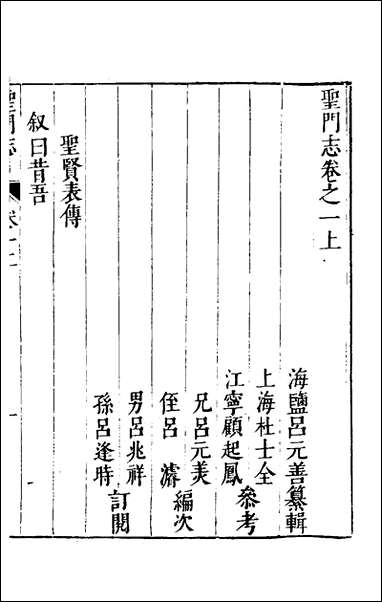 聖門志卷之一上
海鹽呂元善纂輯
上海杜士全
江寧顧起鳳
叅考
兄呂元美
侄呂濬
編次
男呂兆祥
孫呂逢時
訂閱
聖賢表傳
叙曰昔吾
聖門志
卷一上
一